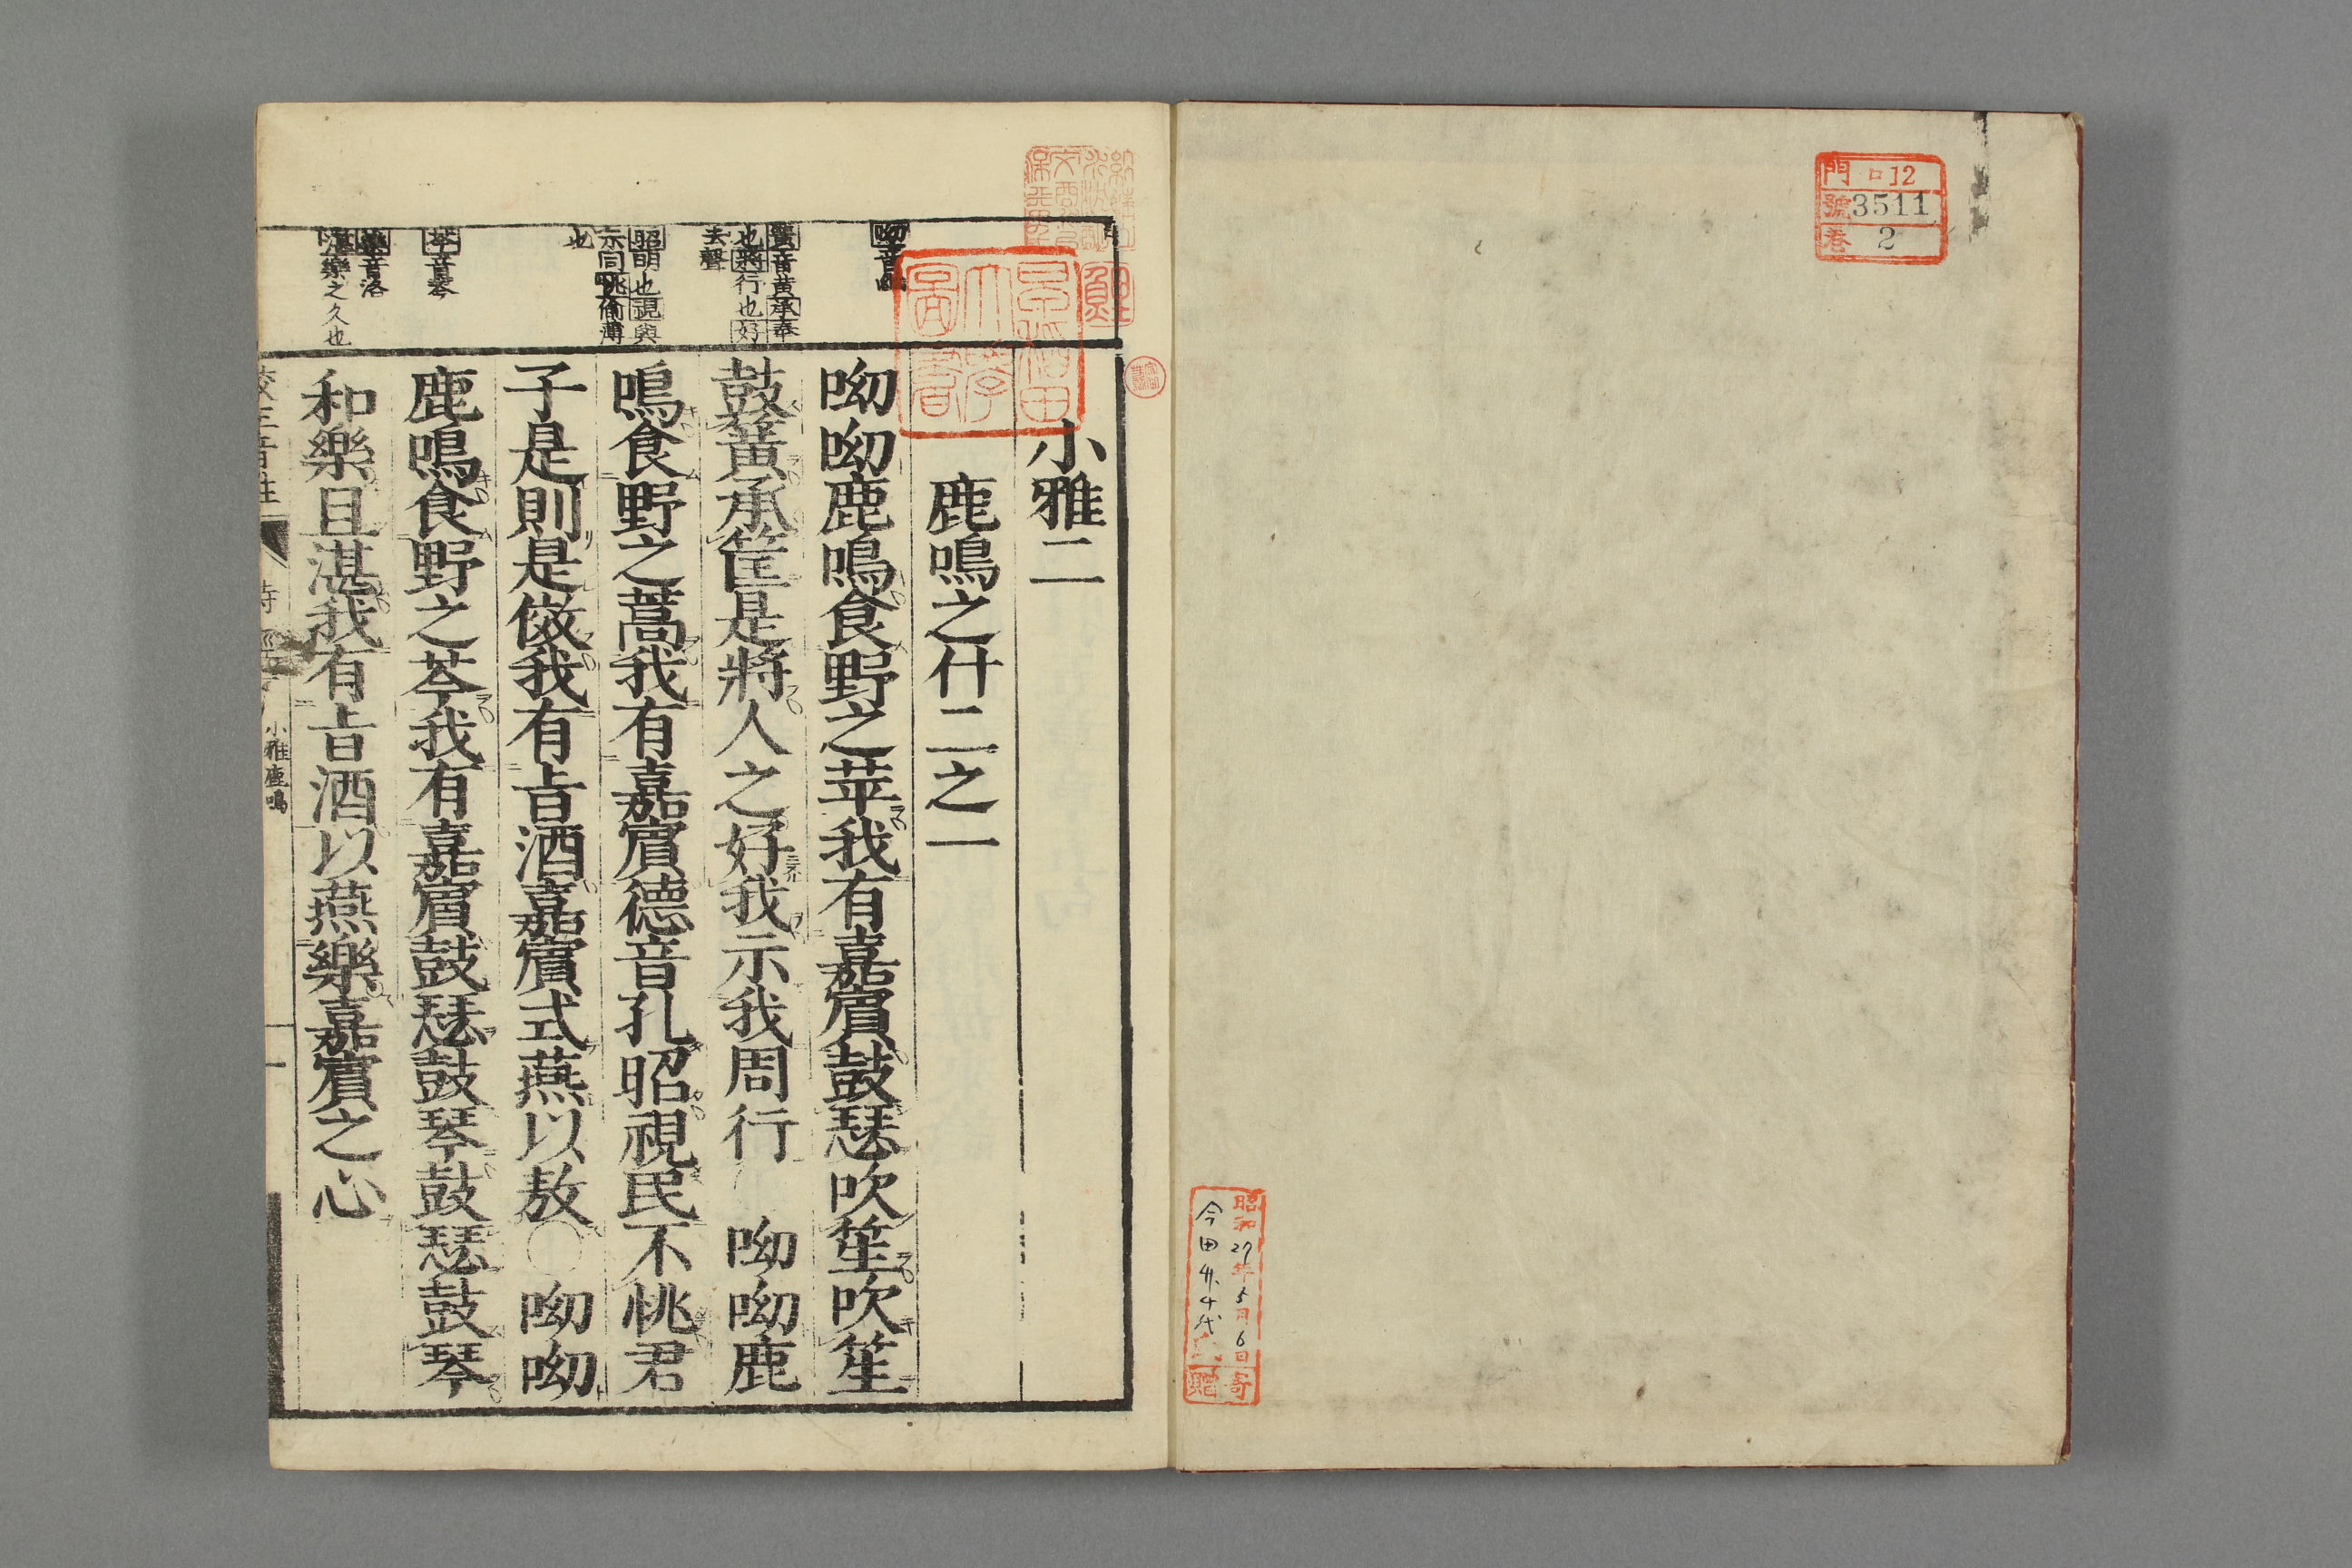 門 口12
號 3511
巻 2
昭和27年5月6日寄
贈
小雅二
鹿鳴之什二之一
呦呦鹿鳴食野之苹我有嘉賔鼓瑟吹笙吹笙
鼓簧承筐是將人之好我示我周行 呦呦鹿
鳴食野之蒿我有嘉賔德音孔昭視民不恌君
子是則是傚我有㫖酒嘉賔式燕以敖〇呦呦
鹿鳴食野之芩我有嘉賔鼓瑟鼓琴鼓瑟鼓琴
和樂且湛我有㫖酒以燕樂嘉賔之心
呦音
簧音黄承奉
也將行也好
去聲
昭明也視與
示同恌偷薄
也
芩音琴
樂音洛
湛樂之久也
小雅鹿鳴
一